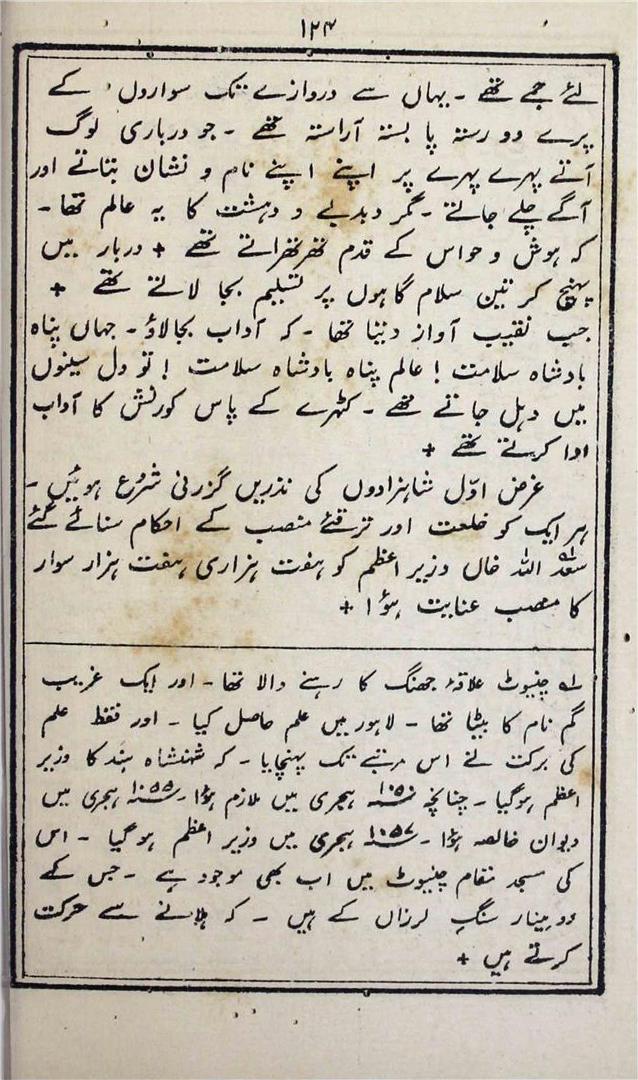 ۱۲۴
لئے جمے تھے ۔ یہاں سے دروازے تک سواروں کے
پرے دو رستہ پا بستہ آراستہ تھے ۔ جو درباری لوگ
آتے پہرے پہرے پر اپنے اپنے نام و نشان بتاتے اور
آگے چلے جاتے ۔ مگر دبدبے و دہشت کا یہ عالم تھا ۔
کہ ہوش و حواس کے قدم تھرتھراتے تھے + دربار میں
پہنچ کر تین سلام گاہوں پر تسلیم بجا لاتے تھے +
جب نقیب آواز دیتا تھا ۔ کہ آداب بجالاؤ ۔ جہاں پناہ
بادشاہ سلامت ! عالم پناہ بادشاہ سلامت ! تو دل سینوں
میں دہل جاتے تھے ۔ کٹہرے کے پاس کورنش کا آداب
ادا کرتے تھے +
غرض اوّل شاہزادوں کی نذریں گزرنی شروع ہوئیں ۔
ہر ایک کو خلعت اور ترقیٔ منصب کے احکام سنائے گئے
سعد اللہ خاں وزیر اعظم کو ہفت ہزاری ہفت ہزار سوار
کا منصب عنایت ہؤا +
لہ چنیوٹ علاقۂ جھنگ کا رہنے والا تھا ۔ اور ایک غریب
گم نام کا بیٹا تھا ۔ لاہور میں علم حاصل کیا ۔ اور فقط علم
کی برکت نے اس مرتبے تک پہنچایا ۔ کہ شہنشاہ ہند کا وزیر
اعظم ہوگیا ۔ چنانچہ ۱۰۵۰ ہجری میں ملازم ہؤا ۔ ۱۰۵۵ ہجری میں
دیوان خالصہ ہؤا ۔ ۱۰۵۷ ہجری میں وزیر اعظم ہو گیا ۔ اس
کی مسجد مقام چنیوٹ میں اب بھی موجود ہے ۔ جس کے
دو مینار سنگِ لرزاں کے ہیں ۔ کہ ہلانے سے حرکت
کرتے ہیں +